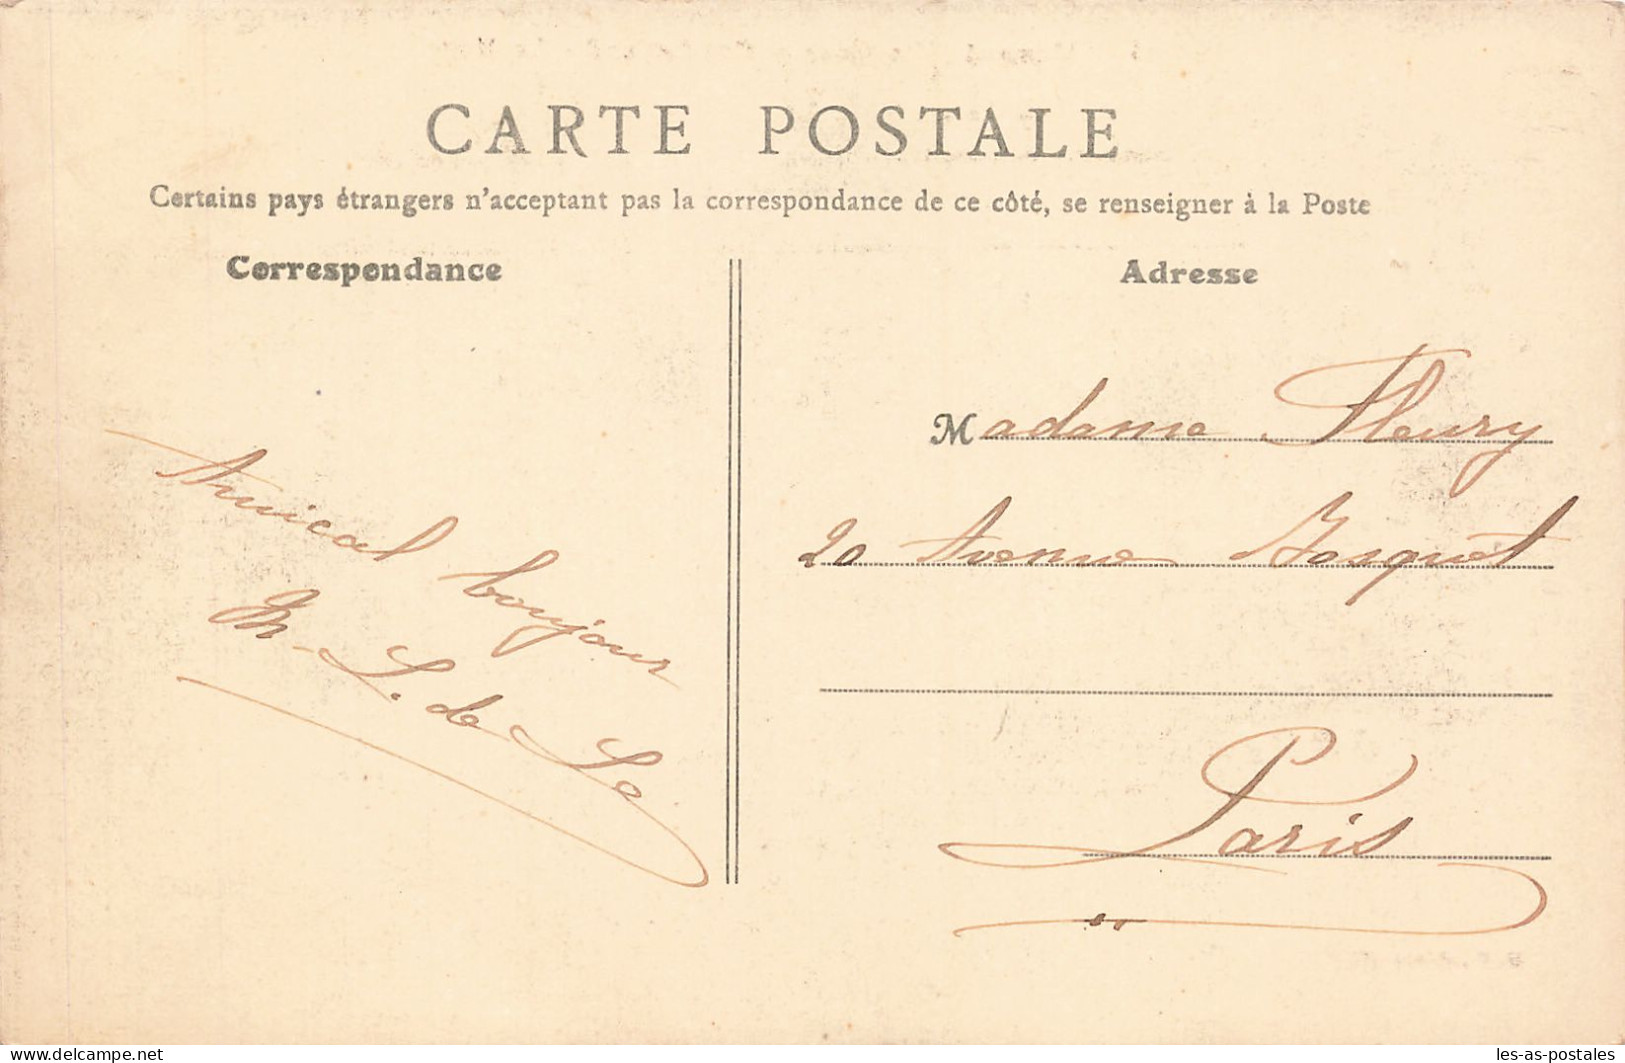 CARTE POSTALE
Certains pays étrangers n'acceptant pas la correspondance de ce côté, se renseigner à la Poste
Correspondance
Amical bonjour
M. L. de La
Adresse
Madame Fleury
20 Avenue Bosquet
Paris
www.delcampe.net
les-as-postales